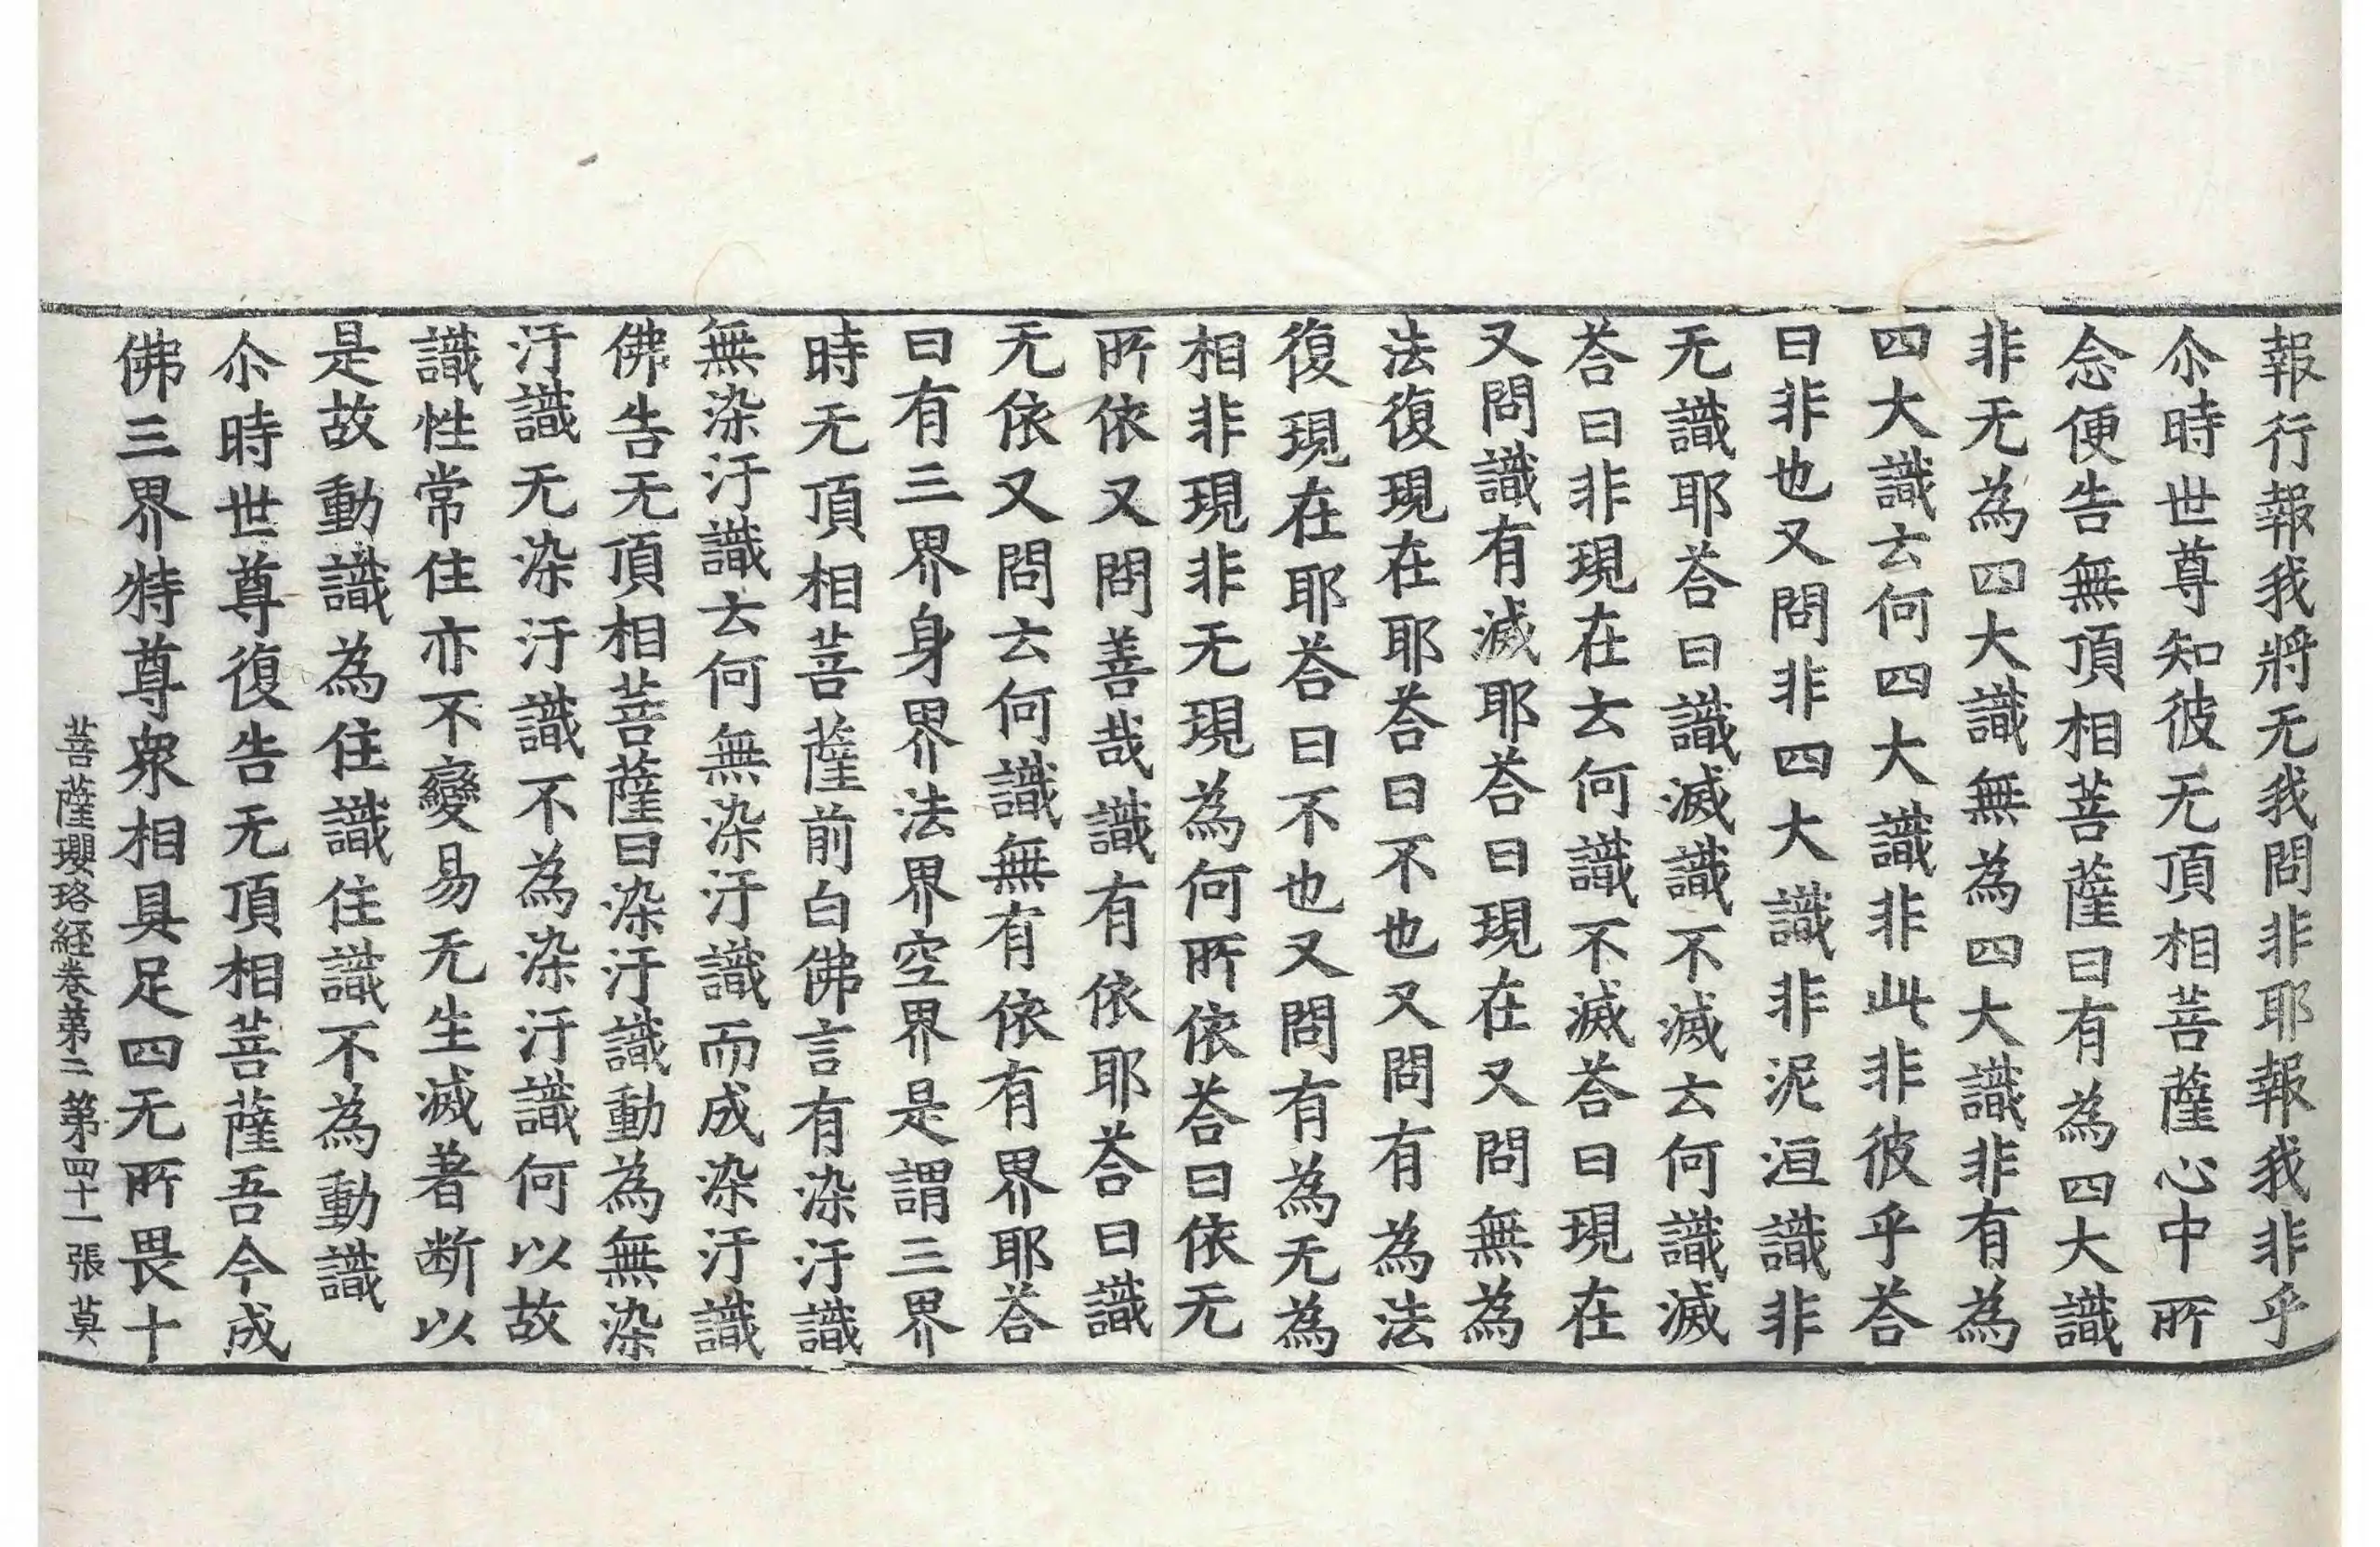 報行報我將无我問非耶報我非乎
尒時世尊知彼无頂相菩薩心中所
念便告無頂相菩薩曰有為四大識
非无為四大識無為四大識非有為
四大識云何四大識非此非彼乎荅
曰非也又問非四大識非泥洹識非
无識耶荅曰識滅識不滅云何識滅
荅曰非現在云何識不滅荅曰現在
又問識有滅耶荅曰現在又問無為
法復現在耶荅曰不也又問有為法
復現在耶荅曰不也又問有為无為
相非現非无現為何所依荅曰依无
所依又問善哉識有依耶荅曰識
无依又問云何識無有依有界耶荅
曰有三界身界法界空界是謂三界
時无頂相菩薩前白佛言有染汙識
無染汙識云何無染汙識而成染汙識
佛告无頂相菩薩曰染汙識動為無染
汙識无染汙識不為染汙識何以故
識性常住亦不變易无生滅著断以
是故動識為住識住識不為動識
尒時世尊復告无頂相菩薩吾今成
佛三界特尊衆相具足四无所畏十
菩薩瓔珞経卷第三 第四十一張 莫